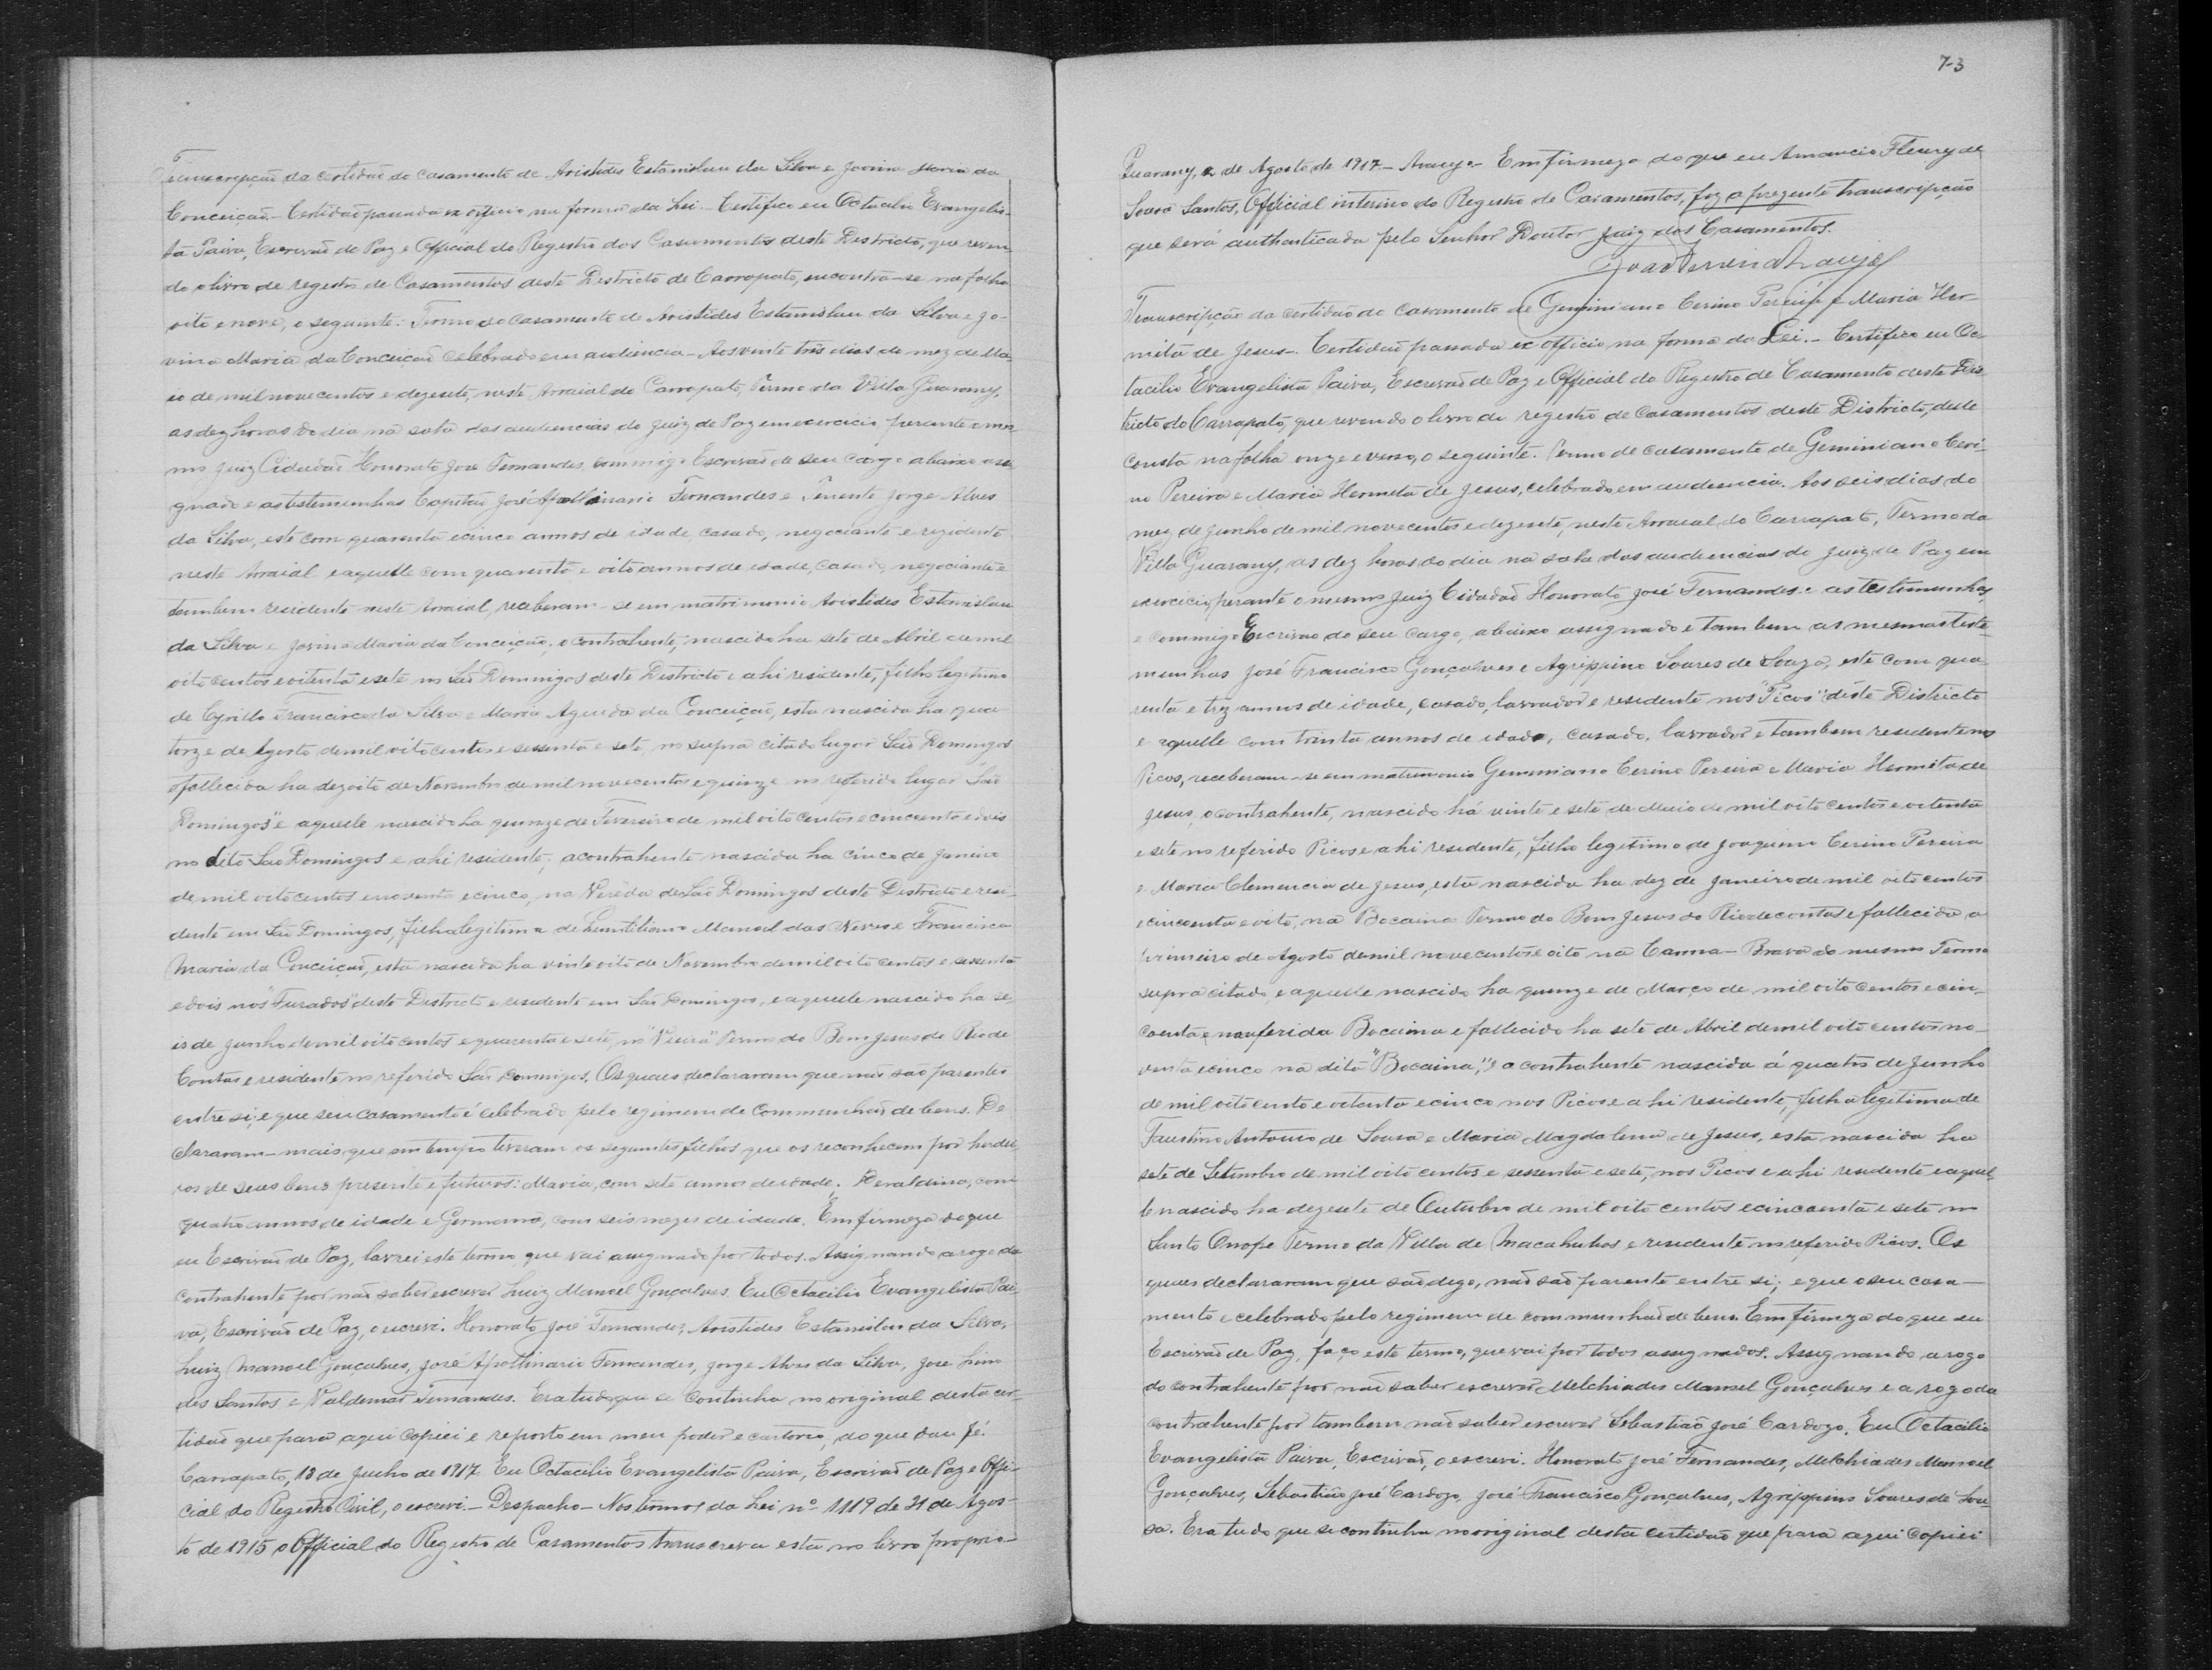 Transcripção da certidão de casamento de Aristides Estanislau da Silva e Jovina Maria da
Conceição.- Certidão passada ex officio na forma da Lei.- Certifico eu Octacilio Evangelis-
ta Paiva, Escrivão de Paz e Official do Registro dos Casamentos deste Districto, que reven
do o livro de registro de Casamentos deste Districto de Carrapato, encontra-se na folha
oito e nove, o seguinte: Termo do Casamento de Aristides Estanislau da Silva e Jo-
vina Maria da Conceição celebrado em audiencia - Aos vinte três dias do mez de Ma-
io de mil novecentos e dezesete, neste Arraial do Carrapato, Termo da Villa Guarany,
as dez horas do dia na sala das audiencias do Juiz de Paz em exercicio perante o mes-
mo Juiz Cidadão Honorato José Fernandes, commigo Escrivão de seu cargo abaixo assi
gnado e as testemunhas Capitão José Apollinario Fernandes e Tenente Jorge Alves
da Silva, este com quarenta e cinco annos de idade, casado, negociante e rezidente
neste Arraial e aquelle com quarenta e oito annos de idade, casado, negociante e
tambem residente neste Arraial, receberam-se em matrimonio Aristides Estanislau
da Silva e Jovina Maria da Conceição; o contrahente, nascido ha sete de Abril de mil
oito centos e oitenta e sete no São Domingos deste Districto e ahi residente, filho legitimo
de Cyrillo Francisco da Silva e Maria Agueda da Conceição, esta nascida ha qua
torze de Agosto de mil oito centos e sessenta e sete, no supra citado lugar São Domingos
e fallecida ha dezoito de Novembro de mil novecentos e quinze no referido lugar "São
Domingos" e aquelle nascido ha quinze de Fevereiro de mil oito centos e cincoenta e dois
no dito São Domingos e ahi residente; a contrahente nascida ha cinco de Janeiro
de mil oito centos e noventa e cinco, na Veréda de São Domingos deste Districto e resi-
dente em São Domingos, filha legitima de Manoel das Neves e Francisca
Maria da Conceição, esta nascida ha vinte oito de Novembro de mil oito centos e sessenta
e dois nos "Furados" deste Districto e residente em São Domingos, e aquelle nascido ha se-
is de Junho de mil oito centos e quarenta e sete, no "Vieira" Termo do Bom Jesus do Rio de
Contas e residente no referido São Domingos. Os quaes declararam que não são parentes
entre si, e que seu casamento é celebrado pelo regimem de Communhão de bens. De
clararam mais que em tempo tiveram os seguintes filhos que os reconhecem por herdei-
ros de seus bens presente e futuros: Maria, com sete annos de idade; Deraldina, com
quatro annos de idade e Germano, com seis mezes de idade. Em firmeza do que
eu Escrivão de Paz, lavrei este termo que vai assignado por todos. Assignando a rogo da
contrahente por não saber escrever Luiz Manoel Gonçalves. Eu Octacilio Evangelista Pai-
va, Escrivão de Paz, o escrevi. Honorato José Fernandes, Aristides Estanislau da Silva,
Luiz Manoel Gonçalves, José Apollinario Fernandes, Jorge Alves da Silva, José Lino
dos Santos e Valdemar Fernandes. Era tudo que se continha no original desta cer-
tidão que para aqui copiei e reporto em meu poder e cartorio, do que dou fé.
Carrapato, 18 de Junho de 1917. Eu Octacilio Evangelista Paiva, Escrivão de Paz e Offi-
cial do Registro Civil, o escrevi.- Despacho - Nos termos da Lei nº 1119 de 21 de Agos-
to de 1915 o Official do Registro de Casamentos transcreva esta no livro proprio-
73
Guarany, 2 de Agosto de 1917.- Araujo - Em firmeza do que eu Amancio Fleury de
Sousa Santos, Official interino do Registro de Casamentos, fiz a prezente transcripção
que será authenticada pelo Senhor Doutor Juiz dos Casamentos.
João Ferreira Araujo
Transcripção da certidão de casamento de Geminiano Cerino Pereira e Maria Her-
mita de Jesus.- Certidão passada ex officio na forma da Lei.- Certifico eu Oc-
tacilio Evangelista Paiva, Escrivão de Paz e Official do Registro de Casamento deste Dis
tricto do Carrapato, que revendo o livro de registro de Casamentos deste Districto, delle
consta na folha onze e verso, o seguinte. Termo de casamento de Geminiano Ceri-
no Pereira e Maria Hermita de Jesus, celebrado em audiencia. Aos seis dias do
mez de Junho de mil novecentos e dezesete, neste Arraial do Carrapato, Termo da
Villa Guarany, as dez horas do dia na sala das audiencias do Juiz de Paz em
exercicio, perante o mesmo Juiz Cidadão Honorato José Fernandes e as testimunhas,
e commigo Escrivão do seu cargo, abaixo assignado e tambem as mesmas teste-
munhas José Francisco Gonçalves e Agrippino Soares de Souza, este com qua
renta e trez annos de idade, casado, lavrador e residente nos "Picos" deste Districto
e aquelle com trinta annos de idade, casado, lavrador e tambem residente nos
Picos, receberam-se em matrimonio Geminiano Cerino Pereira e Maria Hermita de
Jesus, o contrahente, nascido há vinte e sete de Maio de mil oito centos e oitenta
e sete no referido Picos e ahi residente, filho legitimo de Joaquim Cerino Pereira
e Maria Clemencia de Jesus, esta nascida ha dez de Janeiro de mil oito centos
e cincoenta e oito, na Bocaina Termo do Bom Jesus do Rio de contas e fallecida a
primeiro de Agosto de mil novecentos e oito na Canna-Brava do mesmo Termo
supra citado, e aquelle nascido ha quinze de Março de mil oito centos e cin-
coenta e na referida Bocaina e fallecido ha sete de Abril de mil oito centos no-
venta e cinco na dita "Bocaina", e a contrahente nascida á quatro de Junho
de mil oito cento e oitenta e cinco nos Picos e ahi residente, filha legitima de
Faustino Antonio de Sousa e Maria Magdalena de Jesus, esta nascida ha
sete de Setembro de mil oito centos e sessenta e sete, nos Picos e ahi residente e aquel-
le nascido ha dezesete de Outubro de mil oito centos e cincoenta e sete no
Santo Onofre Termo da Villa de Macahubas e residente no referido Picos. Os
quaes declararam que são digo, não são parente entre si; e que o seu casa-
mento é celebrado pelo regimem de communhão de bens. Em firmeza do que eu
Escrivão de Paz, faço este termo, que vai por todos assignados. Assignando a rogo
do contrahente por não saber escrever Melchiades Manoel Gonçalves e a rogo da
contrahente por tambem não saber escrever Sebastião José Cardozo. Eu Octacilio
Evangelista Paiva, Escrivão, o escrevi. Honorato José Fernandes, Melchiades Manoel
Gonçalves, Sebastião José Cardozo, José Francisco Gonçalves, Agrippino Soares de Sou-
sa. Era tudo que se continha no original desta certidão que para aqui copiei